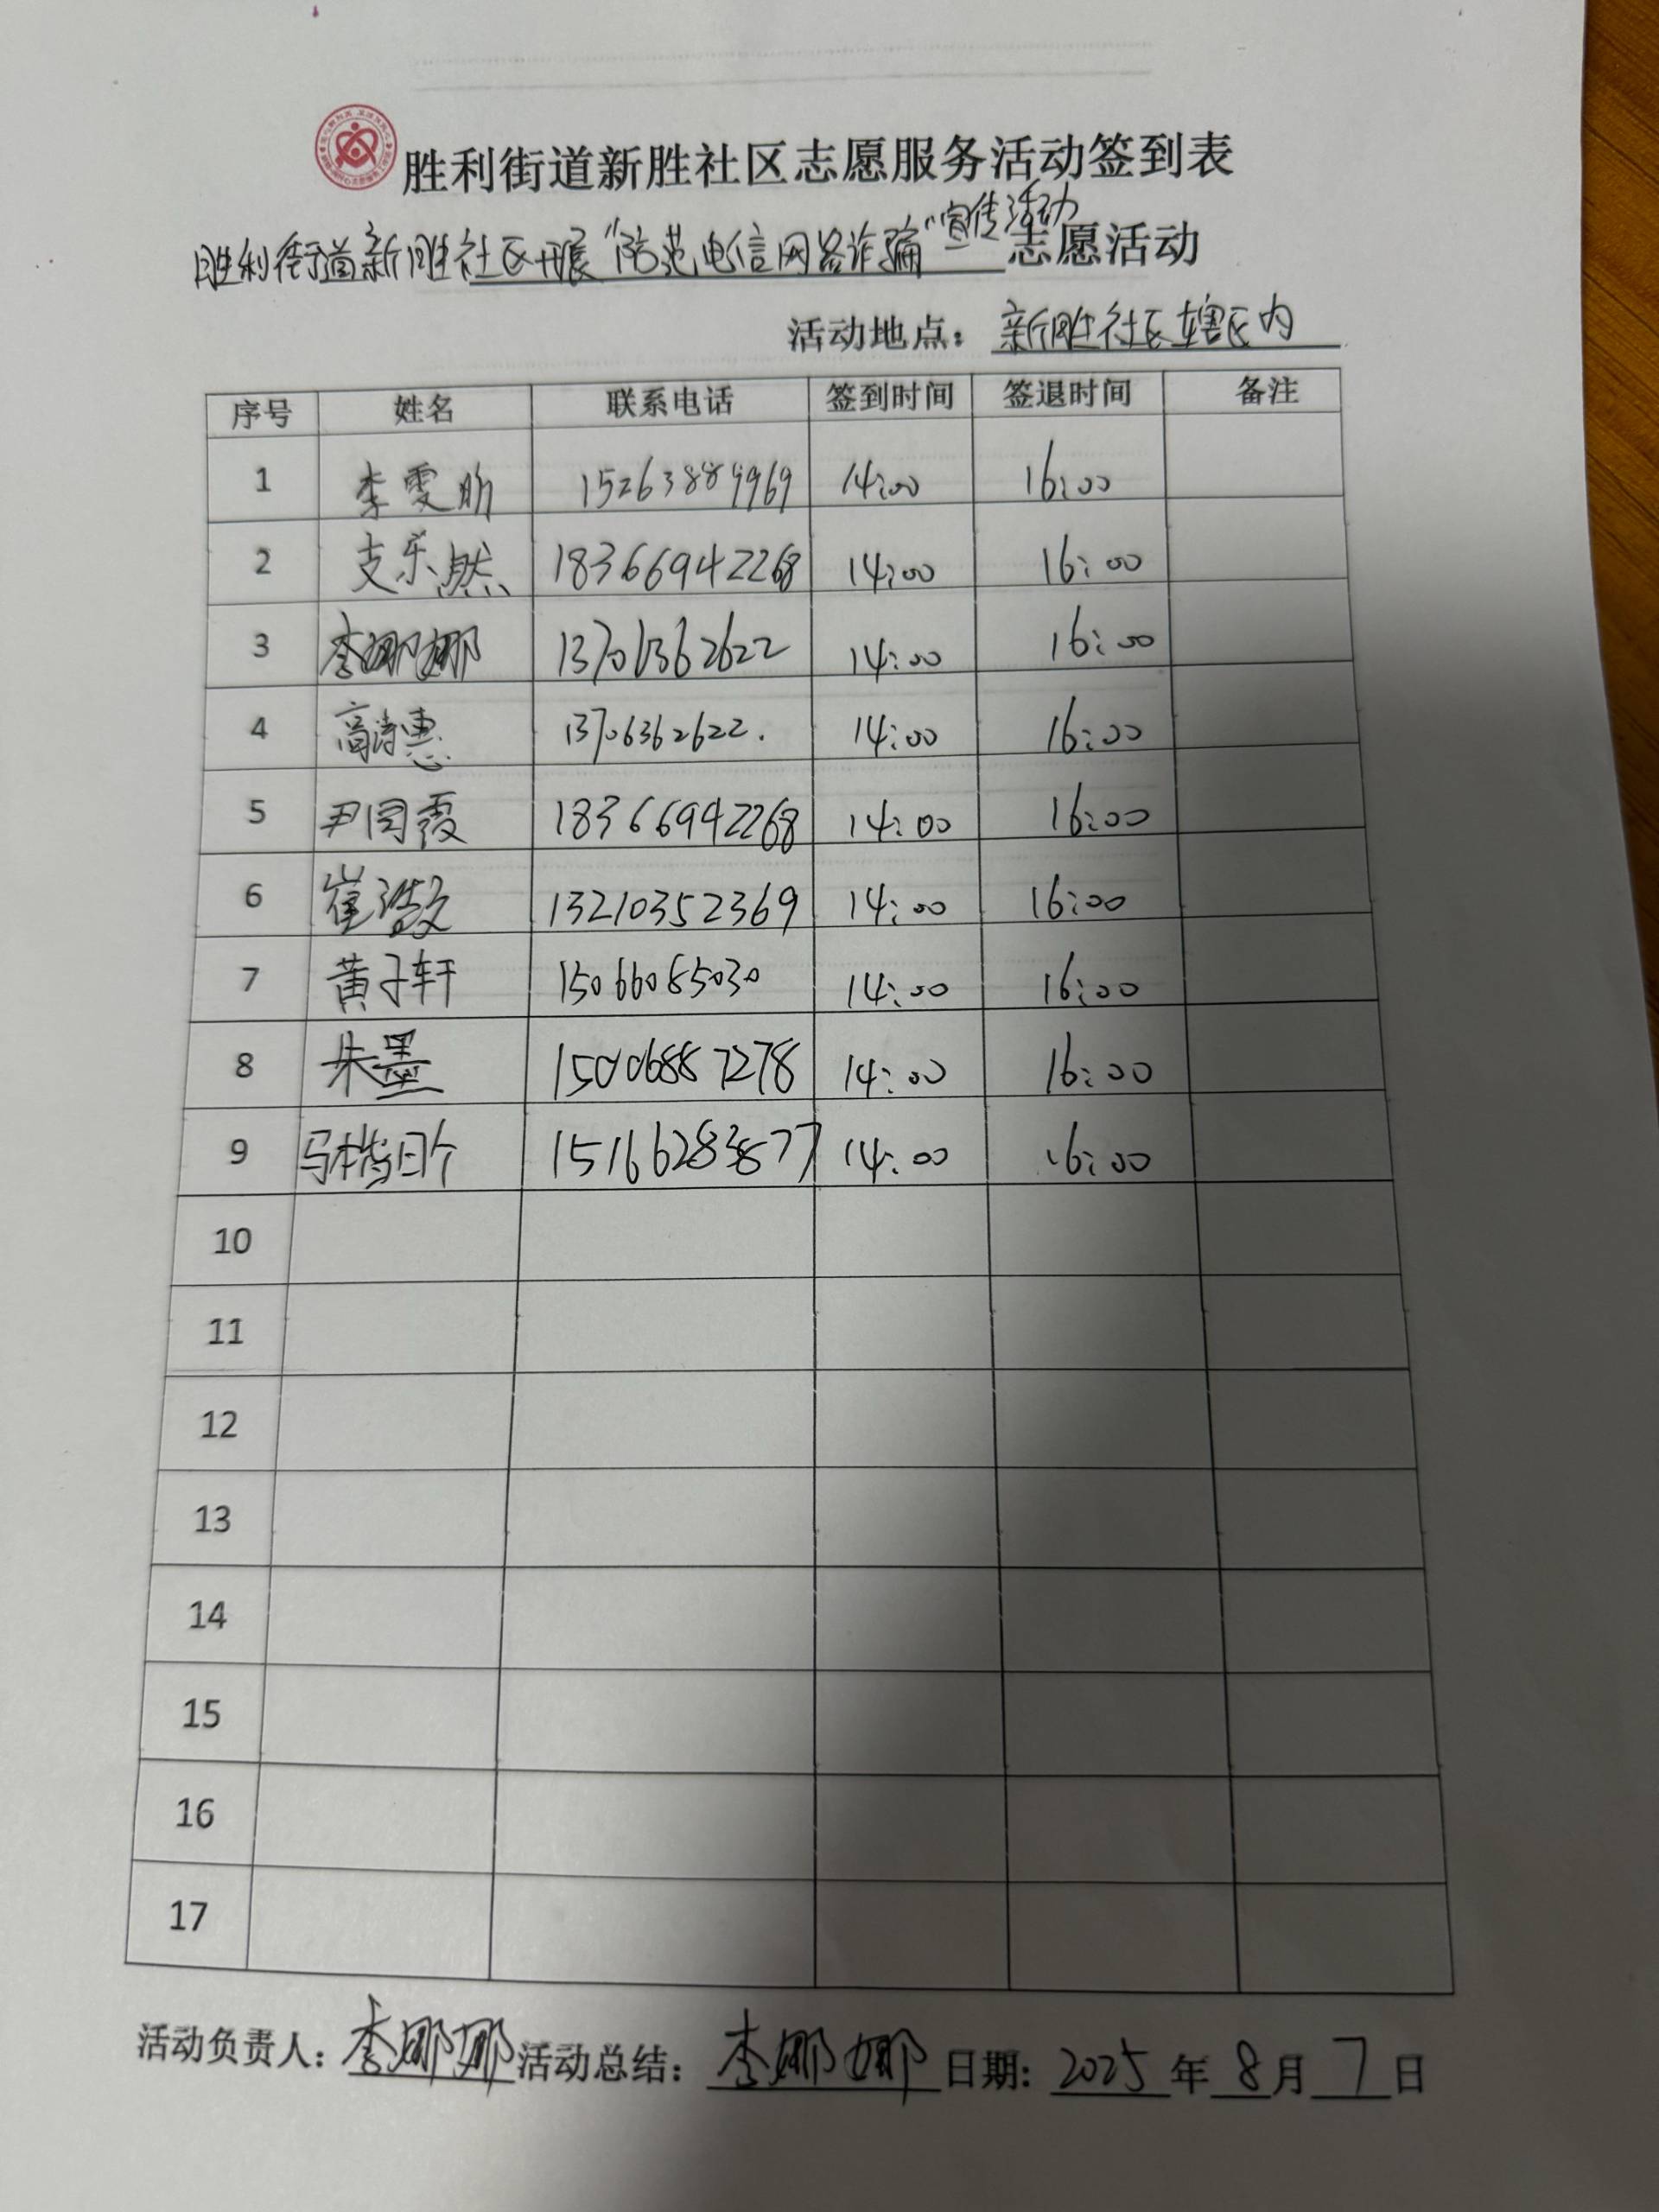 胜利街道新胜社区志愿服务活动签到表
胜利街道新胜社区开展“防范电信网络诈骗”宣传活动志愿活动
活动地点：新胜社区辖区内
序号 姓名 联系电话 签到时间 签退时间 备注
1 李雯昕 15263889969 14:00 16:00
2 支乐然 18366942268 14:00 16:00
3 李娜娜 13706362622 14:00 16:00
4 高诗惠 13706362622. 14:00 16:00
5 尹国霞 18366942268 14:00 16:00
6 崔浩文 13210352369 14:00 16:00
7 黄子轩 15066085030 14:00 16:00
8 朱墨 15006887278 14:00 16:00
9 马 15166283877 14:00 16:00
10
11
12
13
14
15
16
17
活动负责人：李娜娜 活动总结：李娜娜 日期：2025年8月7日